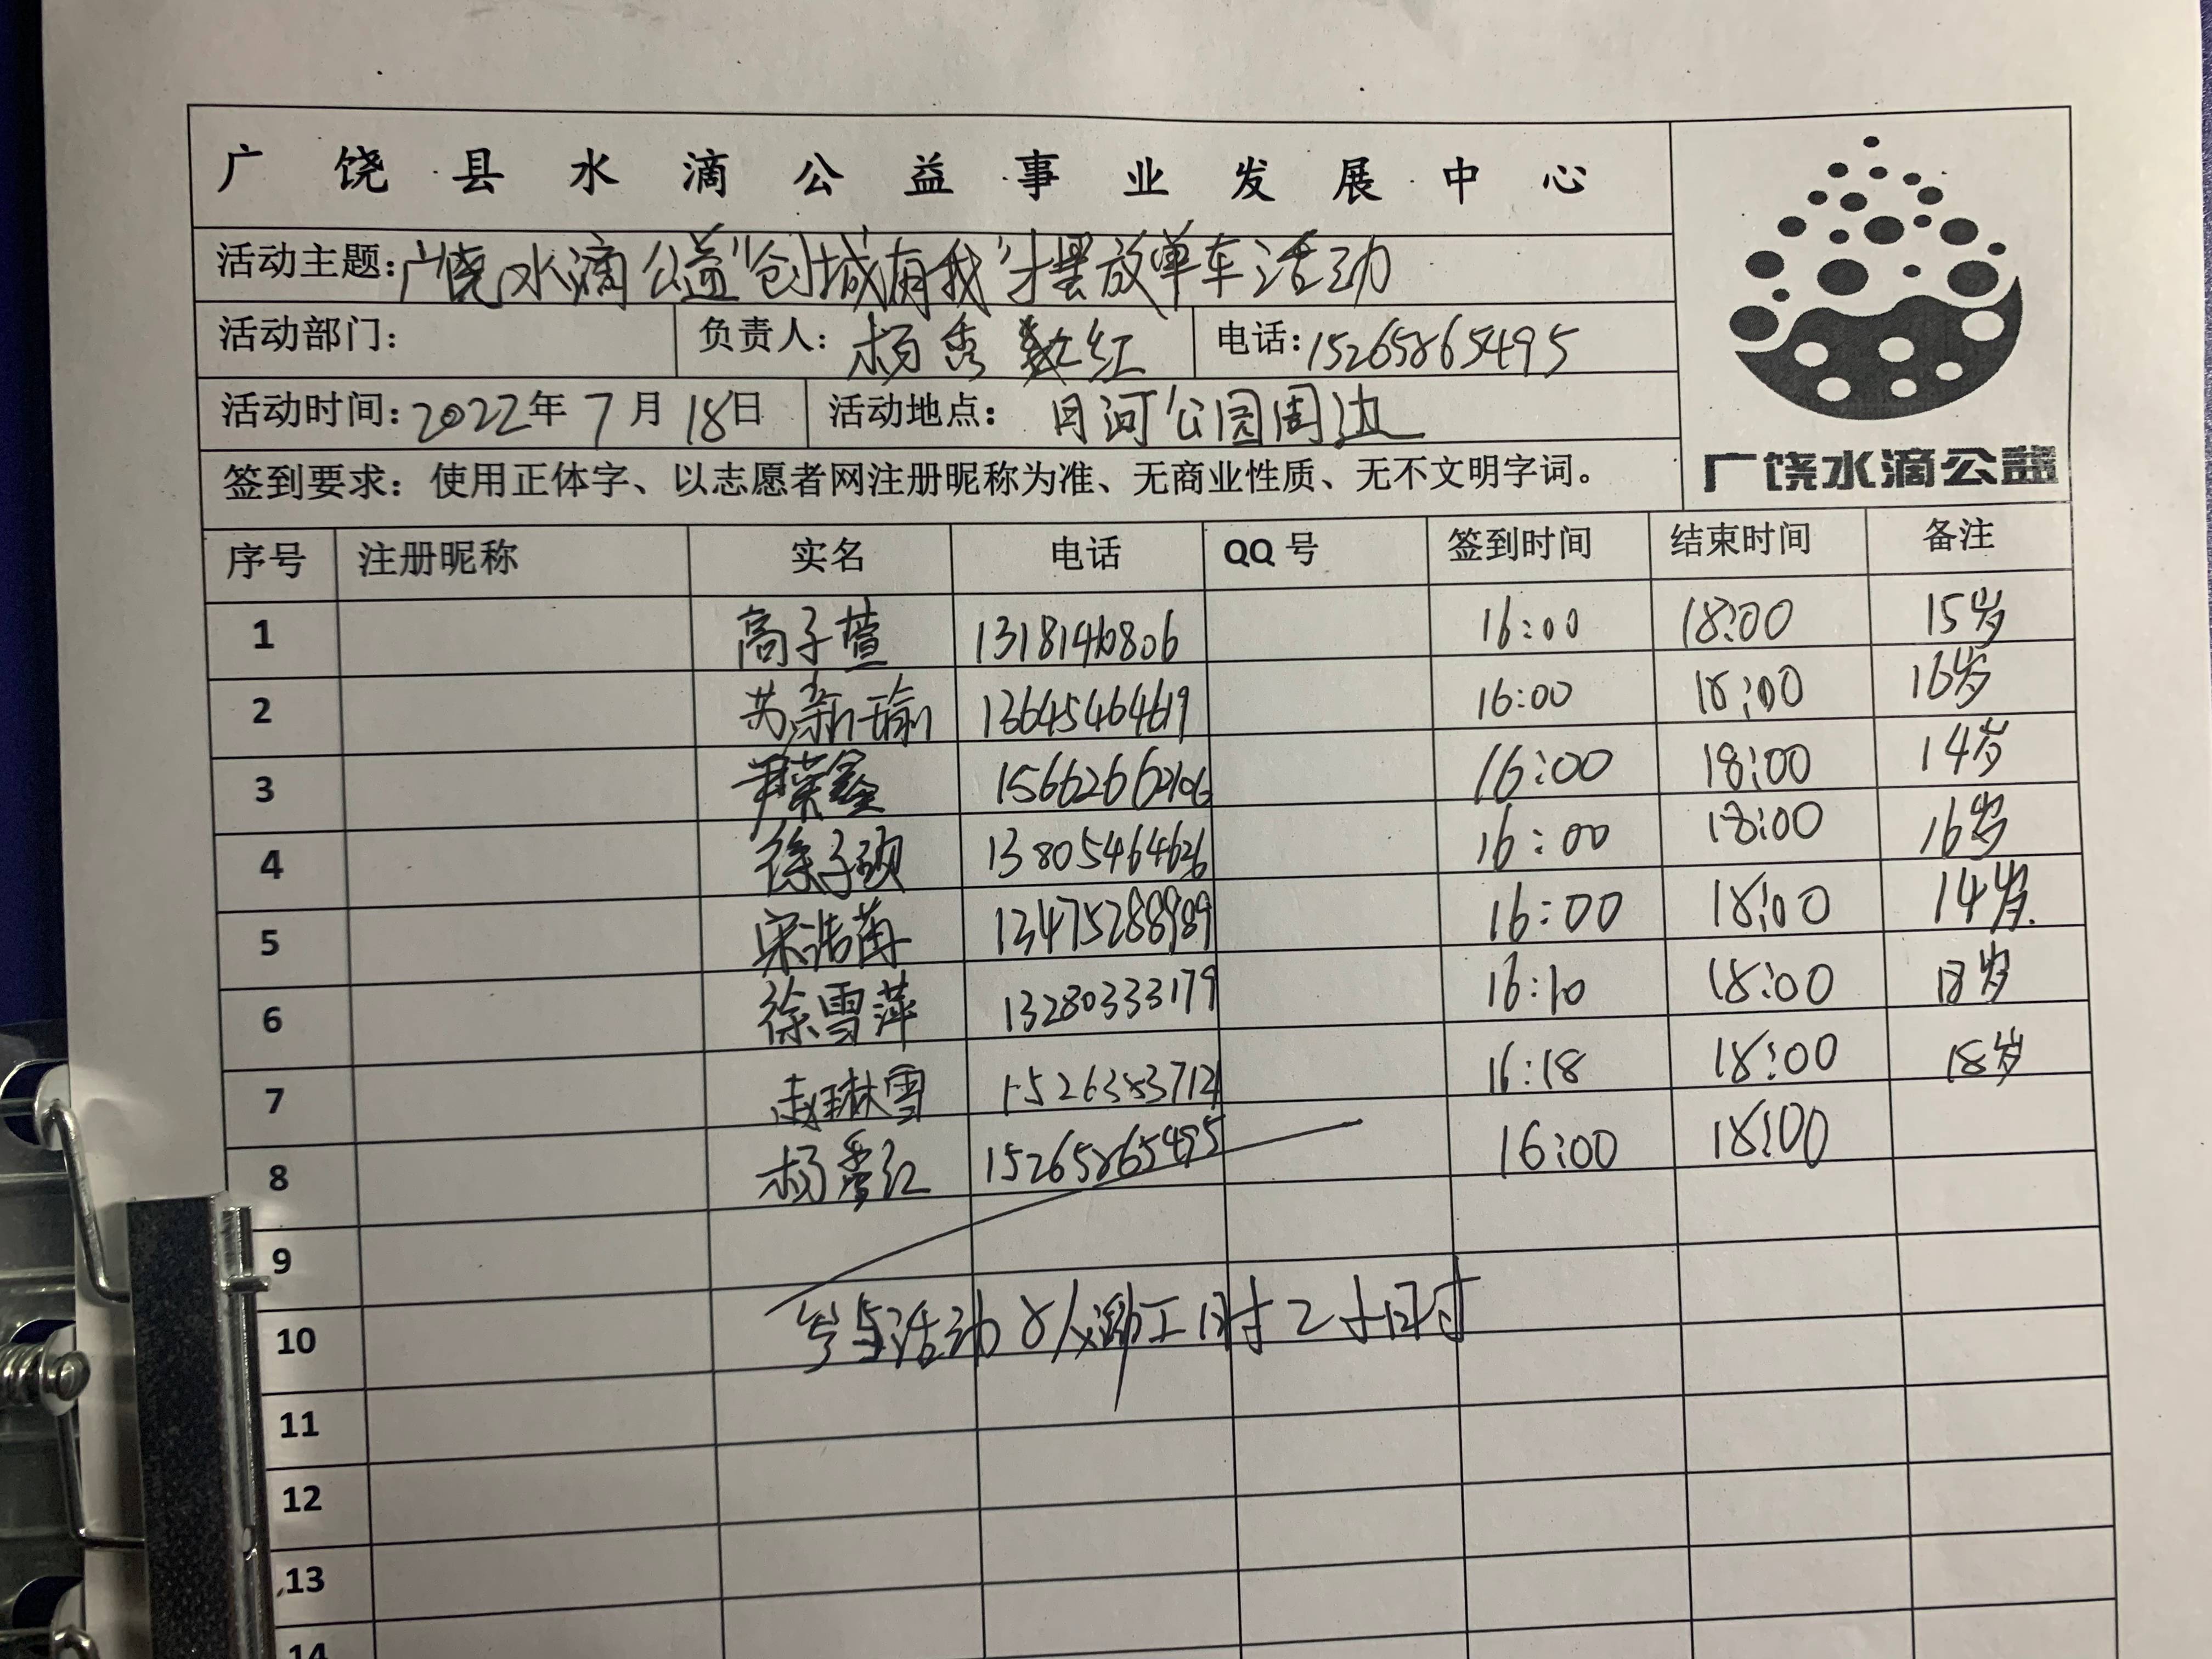 广饶县水滴公益事业发展中心
活动主题:广饶水滴公益"创城有我"摆放单车活动
活动部门: 负责人: 杨秀红 电话:15265865495
活动时间:2022年7月18日 活动地点: 月河公园周边
签到要求: 使用正体字、以志愿者网注册昵称为准、无商业性质、无不文明字词。
广饶水滴公益
序号 注册昵称 实名 电话 QQ号 签到时间 结束时间 备注
1 高子萱 16:00 18:00 15岁
2 苏新瑜 13645464619 16:00 18:00 16岁
3 15662662106 16:00 18:00 14岁
4 徐子硕 13805464626 16:00 18:00 16岁
5 宋浩苒 13475288989 16:00 18:00 14岁.
6 徐雪萍 13280333179 16:10 18:00 18岁
7 赵琳雪 15263853712 16:18 18:00 18岁
8 杨秀红 15265865495 16:00 18:00
9
10 参与活动8人 工时2小时
11
12
13
14